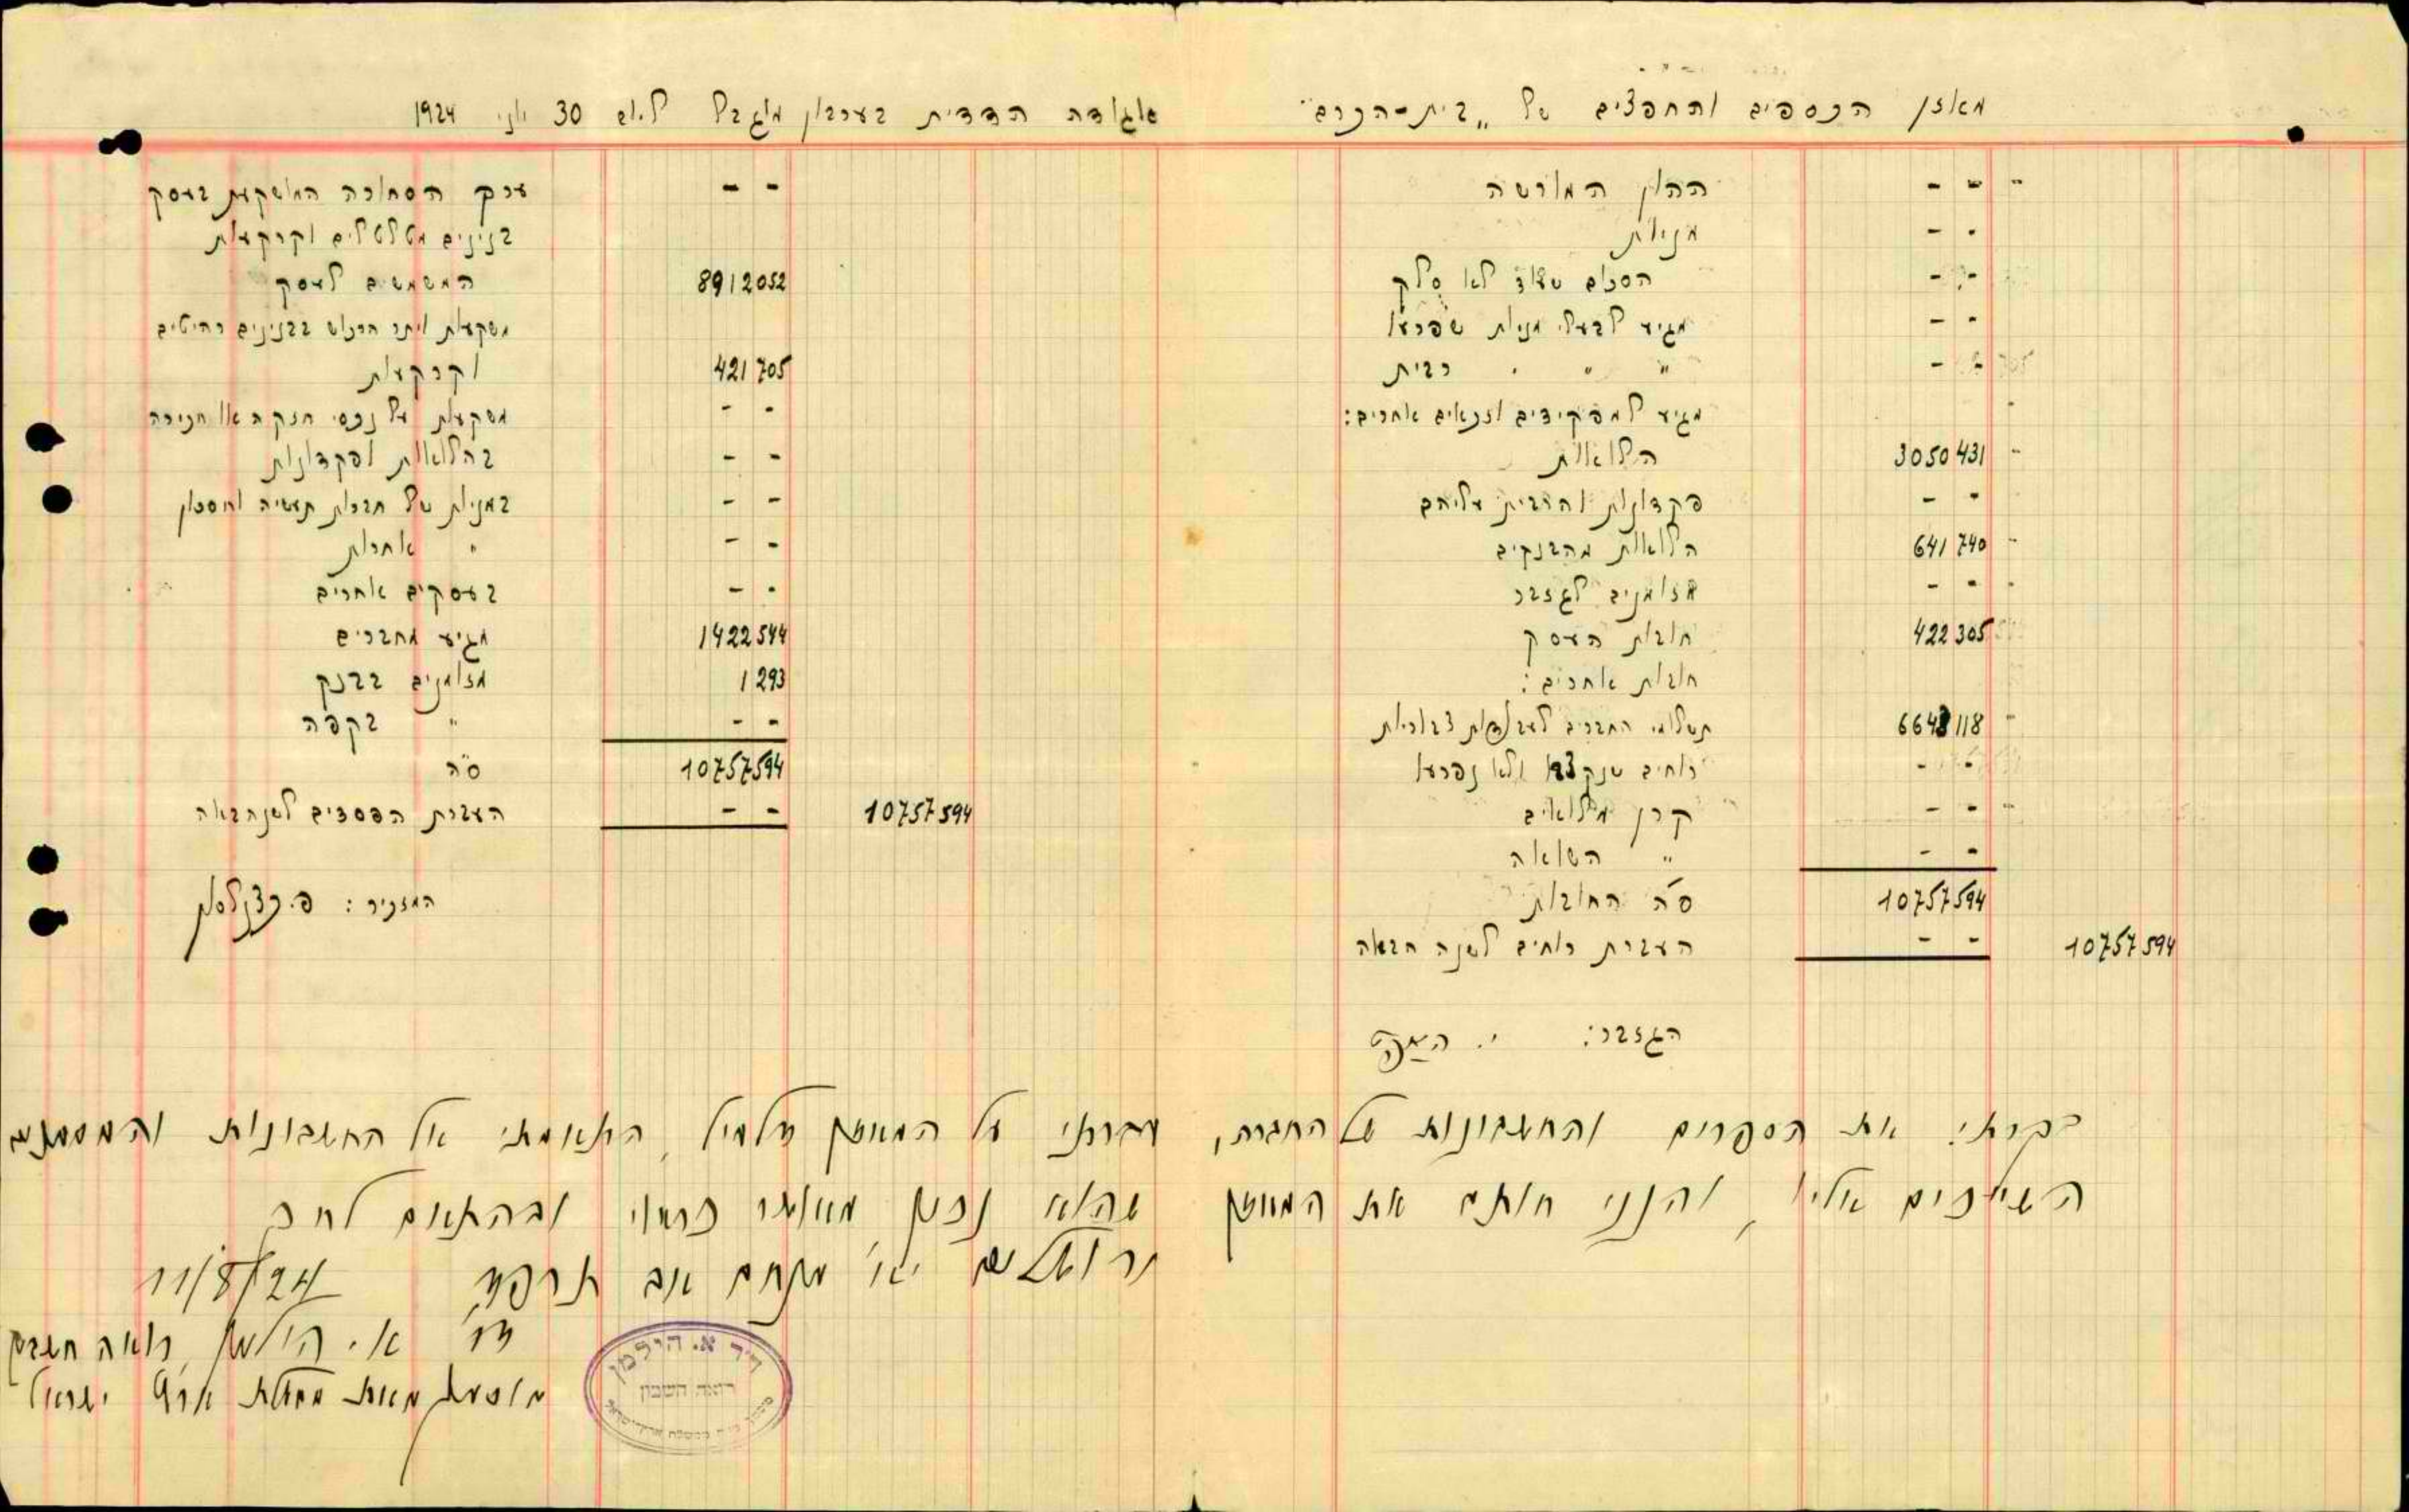 מאזן הכספים והחפצים של „בית-הכרם" אגודה הדדית בערבון מוגבל ליום 30 יוני 1924
ההון המורשה - - -
מניות - -
הסכום שעוד לא סלק - -
מגיע לבעלי מניות שפרעו - -
" " " רבית - -
מגיע למפקידים וזכאים אחרים:
הלואות 3050 431 -
פקדונות והרבית עליהם - -
הלואות מהבנקים 641 740 -
מזומנים לגזבר - - -
חובות העסק 422 305
חובות אחרים:
תשלומי החברים לעבודות צבוריות 6643 118 -
רוחים שנקצבו ולא נפרעו - -
קרן מילואים - - -
" השואה - -
ס"ה החובות 10757 594
העברת רוחים לשנה הבאה - - 10757 594
הגזבר: י.
ערך הסחורה המושקעת בעסק - -
בנינים מטלטלים וקרקעות
המשמשים לעסק 8912 052
משקעות ויתר הרכוש בבנינים רהיטים
וקרקעות 421 705
משקעות על נכסי חזקה או חכירה - -
בהלואות ופקדונות - -
במניות של חברות תעשיה וחסכון - -
" אחרות - -
בעסקים אחרים - -
מגיע מחברים 1422 544
מזומנים בבנק 1 293
" בקפה - -
ס"ה 10757 594
העברת הפסדים לשנה הבאה - - 10757 594
המזכיר: פ. כצנלסון
בקרתי את הספרים והחשבונות של החברה, עברתי על המאזן דלעיל, התאמתי אל החשבונות והמסמכים
השייכים אליו, והנני חותם את המאזן שהוא נכון, מאושר כראוי ובהתאם לחוק
ירושלים יא' מנחם אב תרפ"ד 11/8/24
ד"ר א. הילמן, רואה חשבון
מוסמך מאת ממשלת ארץ ישראל
ד"ר א. הילמן
רואה חשבון